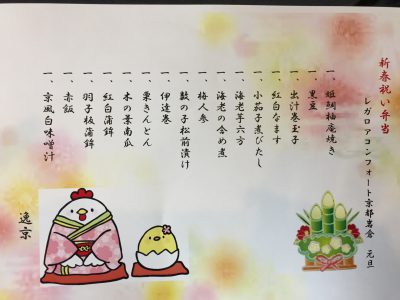 新春祝い弁当
レガロアコンフォート京都岩倉 元旦
一、姫鯛柚庵焼き
一、黒豆
一、出汁巻玉子
一、紅白なます
一、小茄子煮びたし
一、海老芋六方
一、海老の含め煮
一、梅人参
一、数の子松前漬け
一、伊達巻
一、栗きんとん
一、木の葉南瓜
一、紅白蒲鉾
一、羽子板蒲鉾
一、赤飯
一、京風白味噌汁
逸京